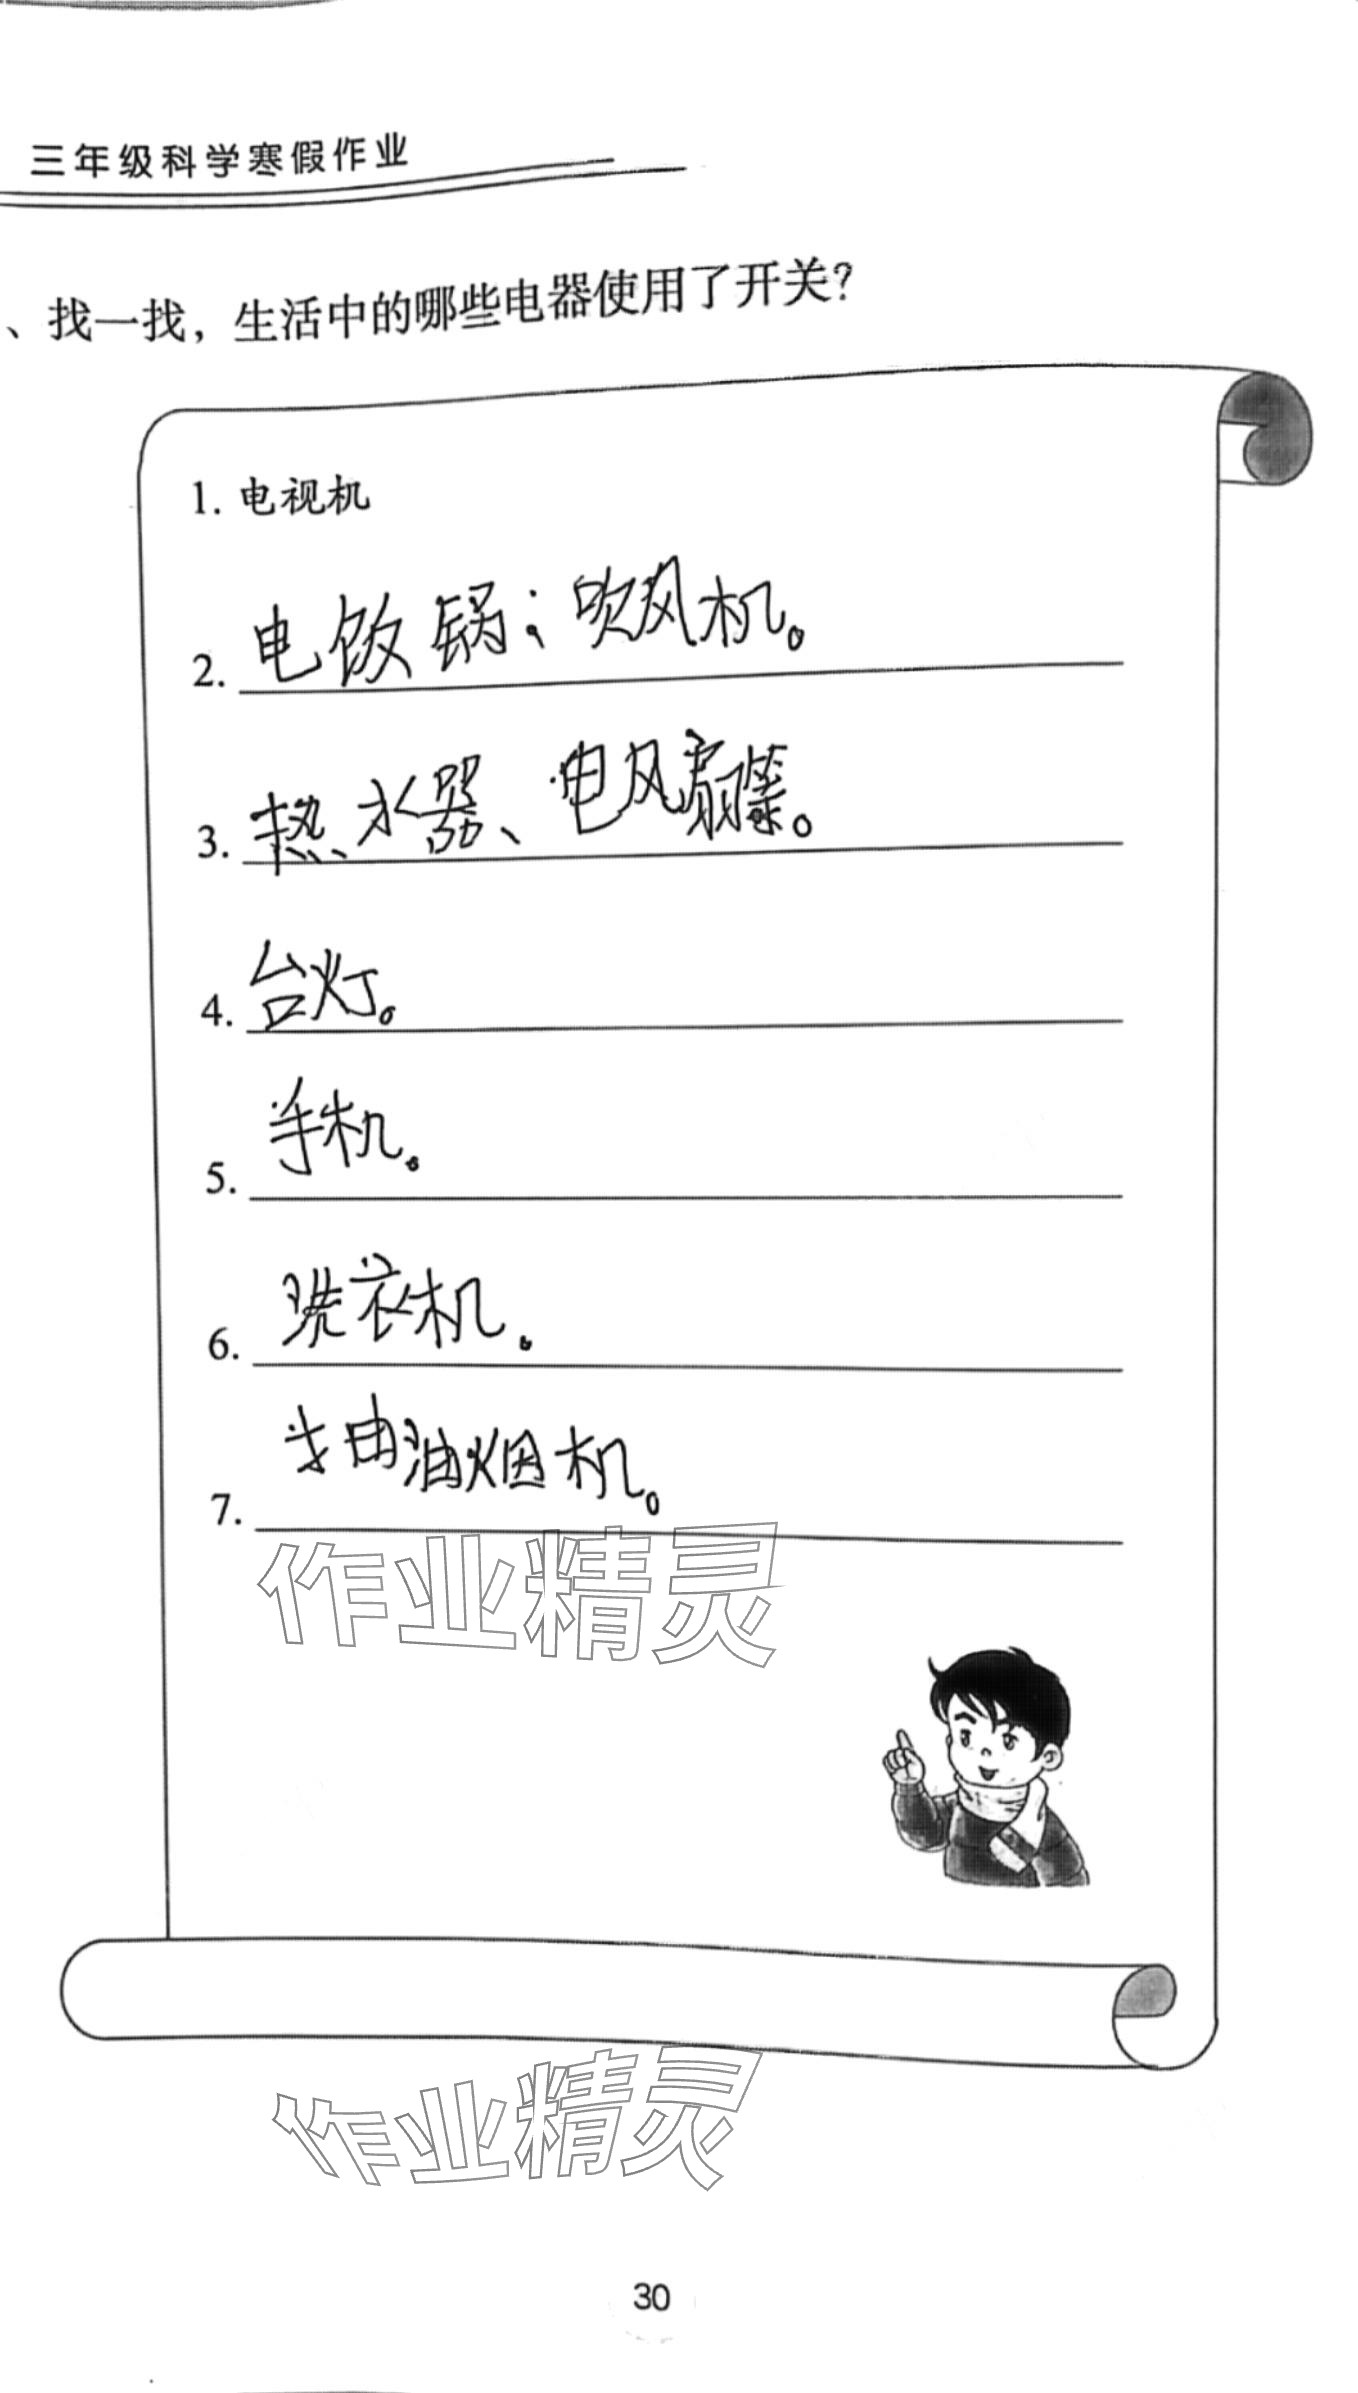 三年级科学寒假作业
、找一找，生活中的哪些电器使用了开关？
1. 电视机
2. 电饭锅；吹风机。
3. 热水器、电风扇等。
4. 台灯。
5. 手机。
6. 洗衣机。
7. 抽油烟机。
作业精灵
作业精灵
30